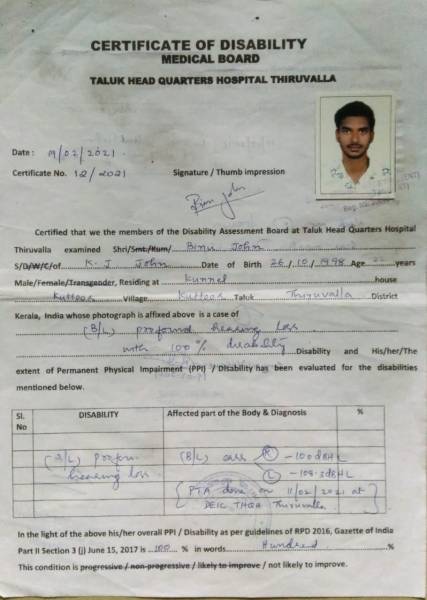 CERTIFICATE OF DISABILITY
MEDICAL BOARD
TALUK HEAD QUARTERS HOSPITAL THIRUVALLA
Date : 11/02/2021
Certificate No. 12/2021 Signature / Thumb impression
Certified that we the members of the Disability Assessment Board at Taluk Head Quarters Hospital
Thiruvalla examined Shri/Smt./Kum/ Binu John
S/D/W/C/of K. J John Date of Birth 26/10/1998 Age years
Male/Female/Transgender, Residing at Kunnel house
Kuttoor Village Kuttoor Taluk Thiruvalla District
Kerala, India whose photograph is affixed above is a case of
(B/L) profound hearing loss
with 100% disability Disability and His/her/The
extent of Permanent Physical Impairment (PPI) / Disability has been evaluated for the disabilities
mentioned below.
Sl. No DISABILITY Affected part of the Body & Diagnosis %
(B/L) profoun (B/L) ears R - 100dBHL
hearing loss L - 108.3dBHL
(PTA done on 11/02/2021 at
DEIC THQH Thiruvalla
In the light of the above his/her overall PPI / Disability as per guidelines of RPD 2016, Gazette of India
Part II Section 3 (j) June 15, 2017 is 100 % in words Hundred %
This condition is progressive / non-progressive / likely to improve / not likely to improve.